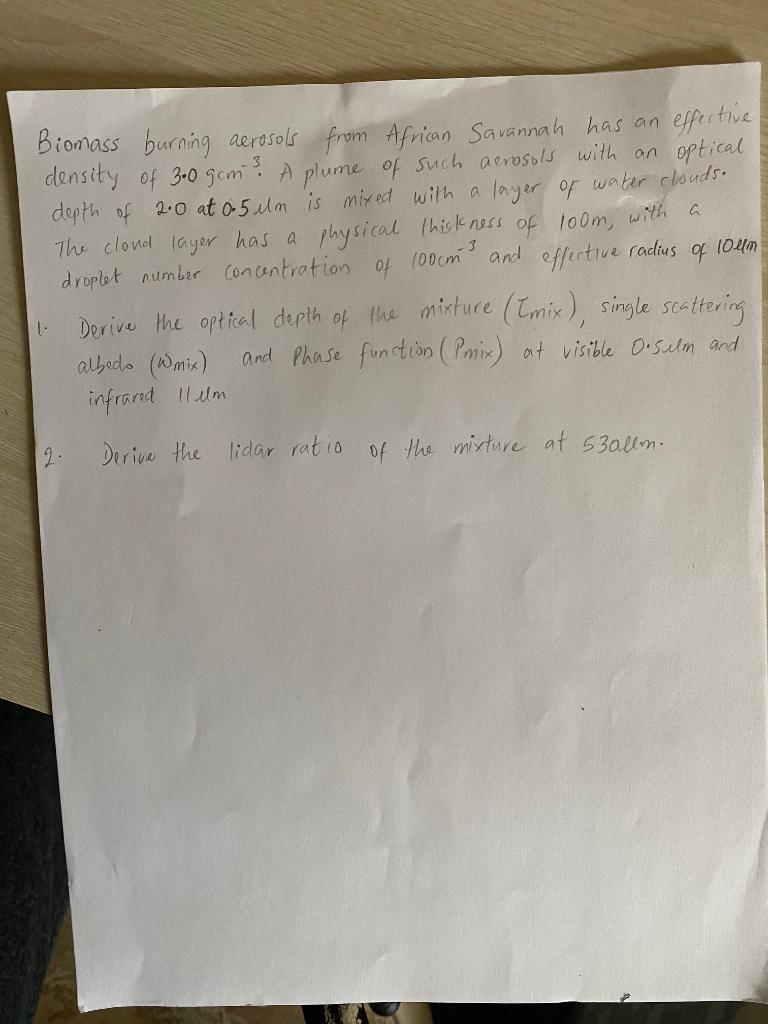 Biomass burning aerosols from African Savannah has an effective
density of 3.0 gcm⁻³. A plume of such aerosols with an optical
depth of 2.0 at 0.5 um is mixed with a layer of water clouds.
The cloud layer has a physical thickness of 100m, with a
droplet number concentration of 100cm⁻³ and effective radius of 10um
1. Derive the optical depth of the mixture (τmix), single scattering
albedo (ωmix) and Phase function (Pmix) at visible 0.5um and
infrared 11um
2. Derive the lidar ratio of the mixture at 530um.